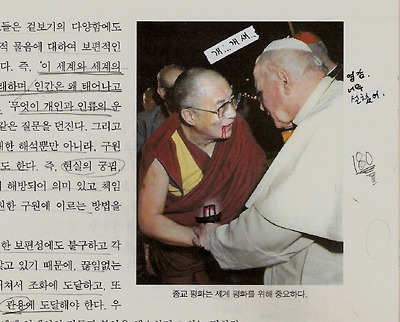 들은 겉보기의 다양함에도
적 물음에 대하여 보편적인
다. 즉, '이 세계와 세계의
대하며, 인간은 왜 태어나고
'무엇이 개인과 인류의 운
같은 질문을 던진다. 그리고
대한 해석뿐만 아니라, 구원
도 한다. 즉, 현실의 궁핍,
해방되어 의미 있고 책임
원한 구원에 이르는 방법을
한 보편성에도 불구하고 각
갖고 있기 때문에, 끊임없는
져서 조화에 도달하고, 또
관용에 도달해야 한다. 우
개...개새..
너무
180
종교 평화는 세계 평화를 위해 중요하다.